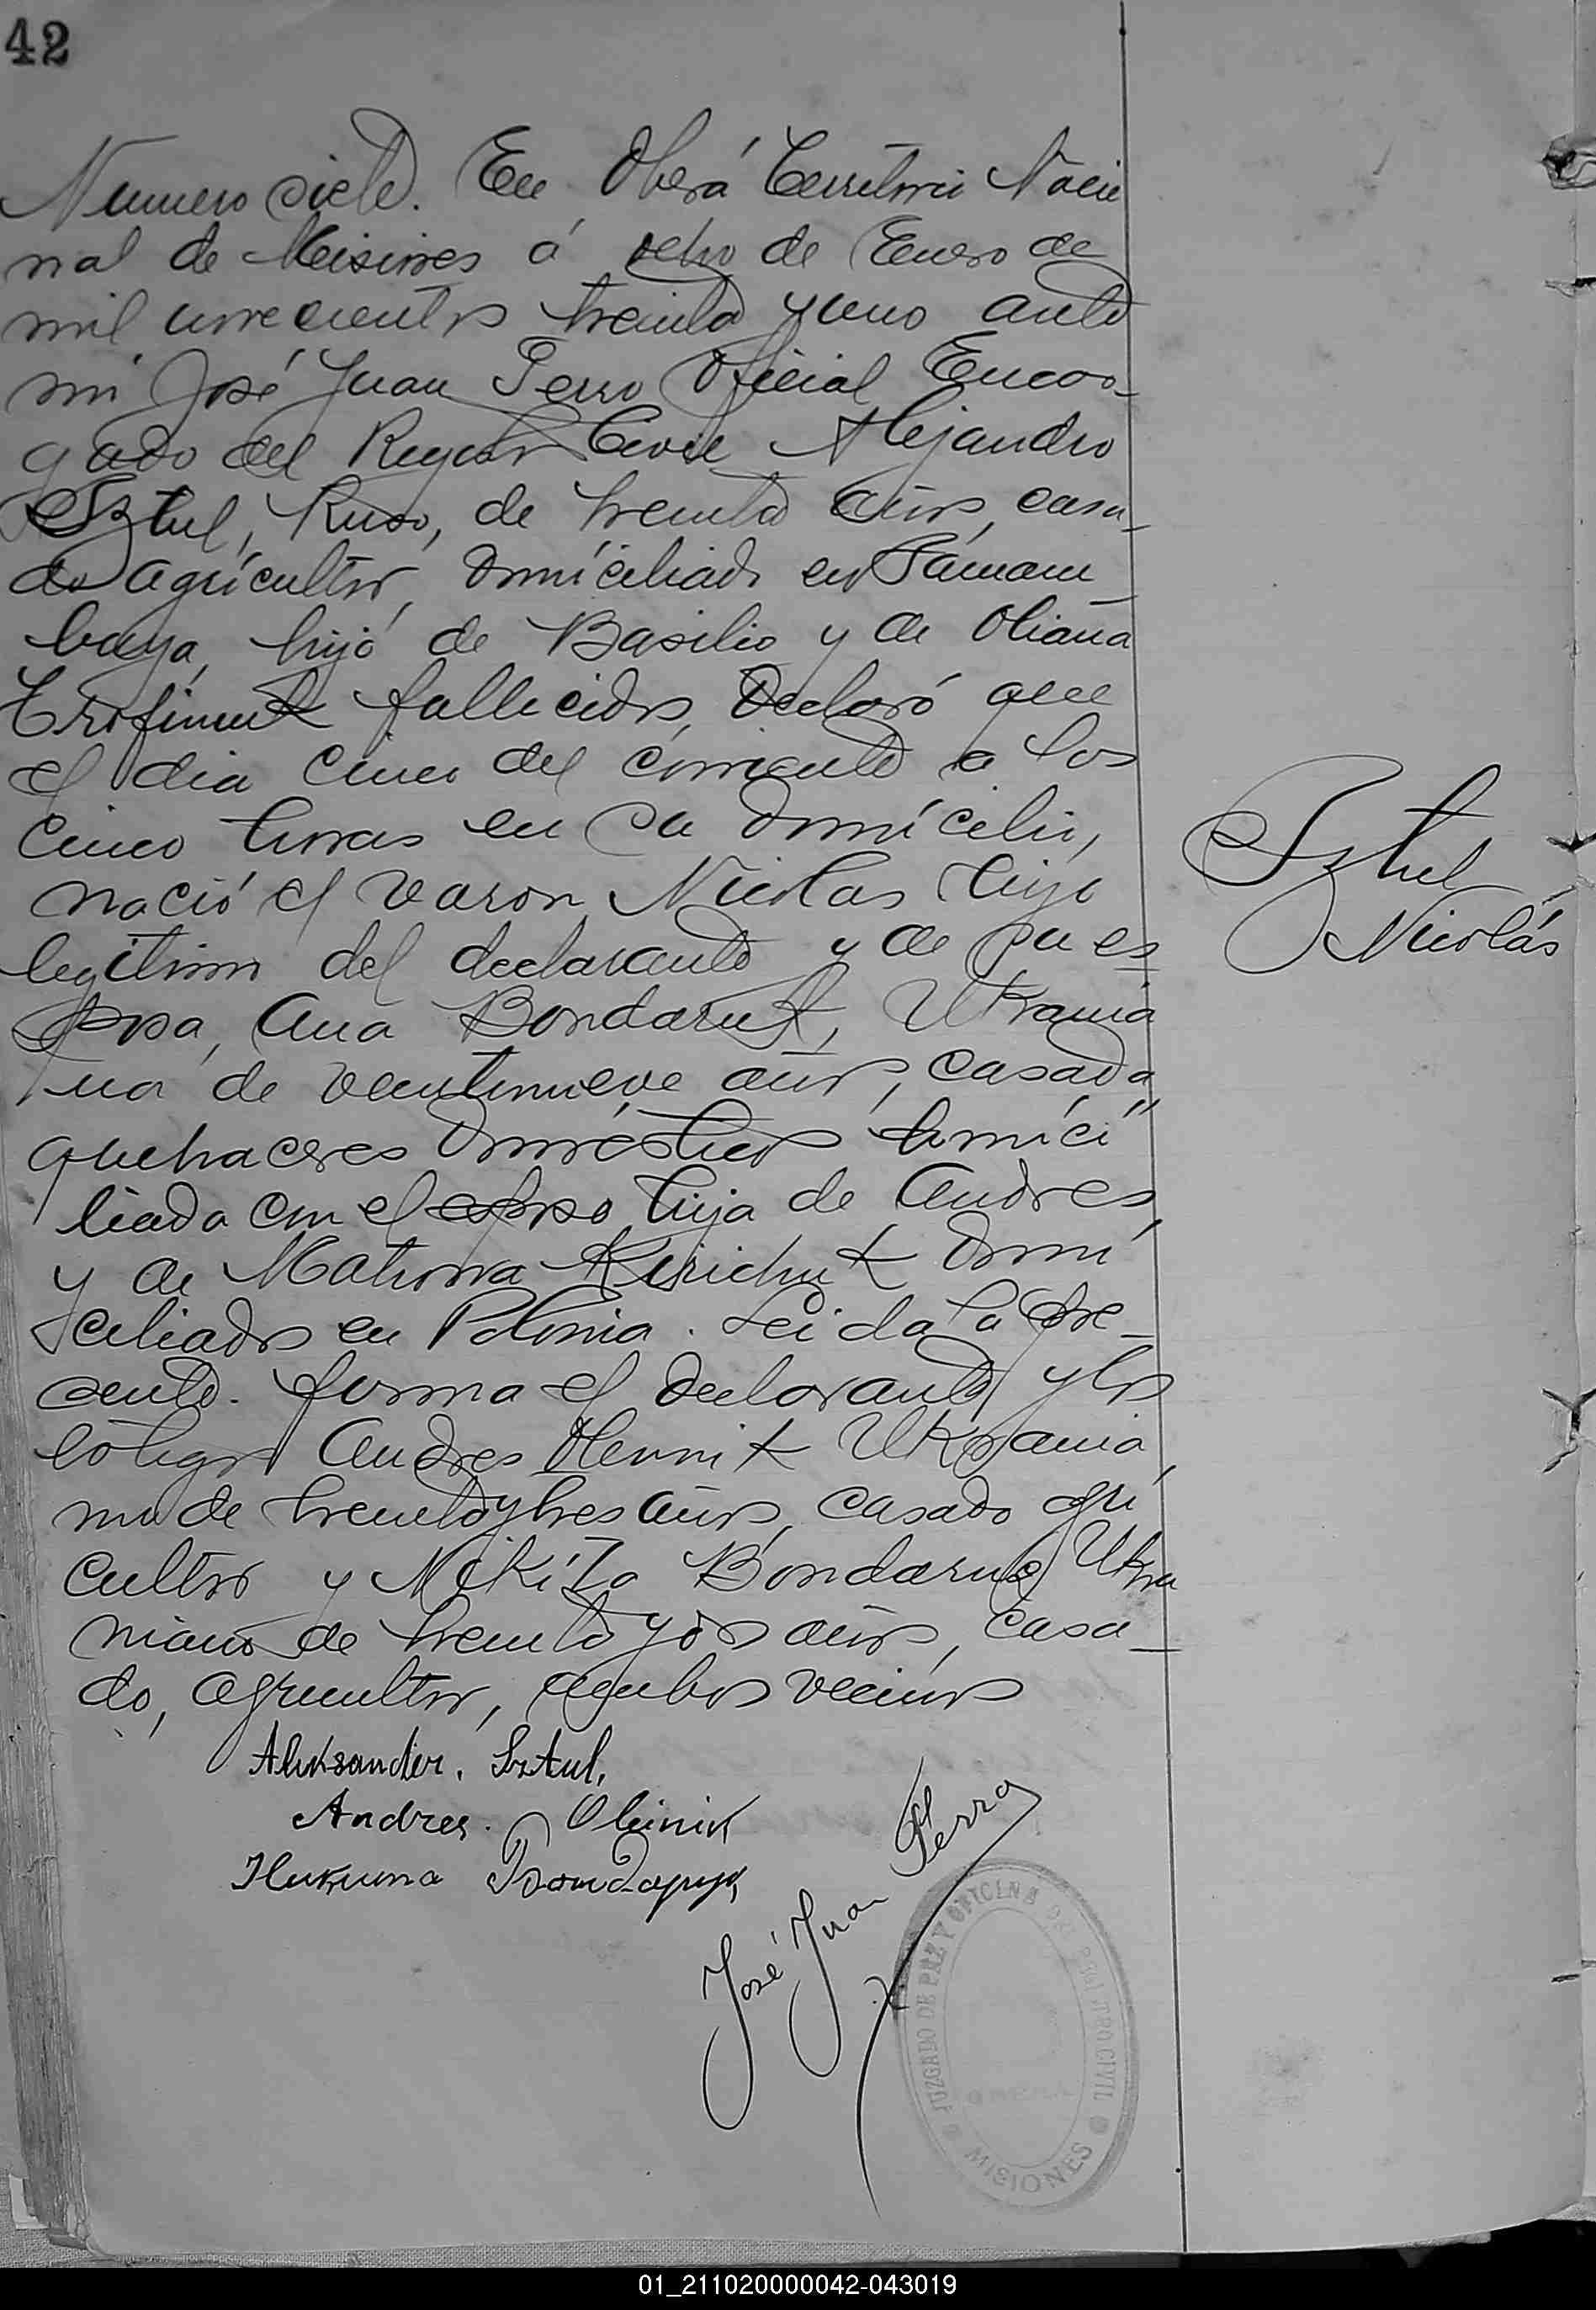 42
Numero siete. En Oberá Territorio Nacio
nal de Misiones á ocho de Enero de
mil novecientos treinta y uno ante
mi José Juan Perro Oficial Encar-
gado del Registro Civil Alejandro
Sztul, Ruso, de treinta años, casa-
do agricultor, domiciliado en Pánam-
baya, hijo de Basilio y de Oliana
Trofimuk fallecidos, Declaró que
el dia cinco del corriente a las
cinco horas en su domicilio,
nació el varon Nicolas hijo
legitimo del declarante y de su es
posa, Ana Bondaruk, Ukrania
na de veintinueve años, casada,
quehaceres domésticos domici
liada con el esposo hija de Andres,
y de Matrona Kirichuk domi
ciliados en Polonia. Leida la pre-
sente. firma el declarante y los
testigos Andres Olennik Ukrania
no de treinta y tres años, casado agri
cultor y Nikita Bondaruc Ukra
niano de treinta y dos años, casa-
do, agricultor, ambos vecinos
Sztul
Nicolás
Aleksander. Sztul,
Andres. Oleinik
Никита Бондарук,
José Juan Perro
JUZGADO DE PAZ Y OFICINA DEL REGISTRO CIVIL
OBERA
MISIONES
01_211020000042-043019